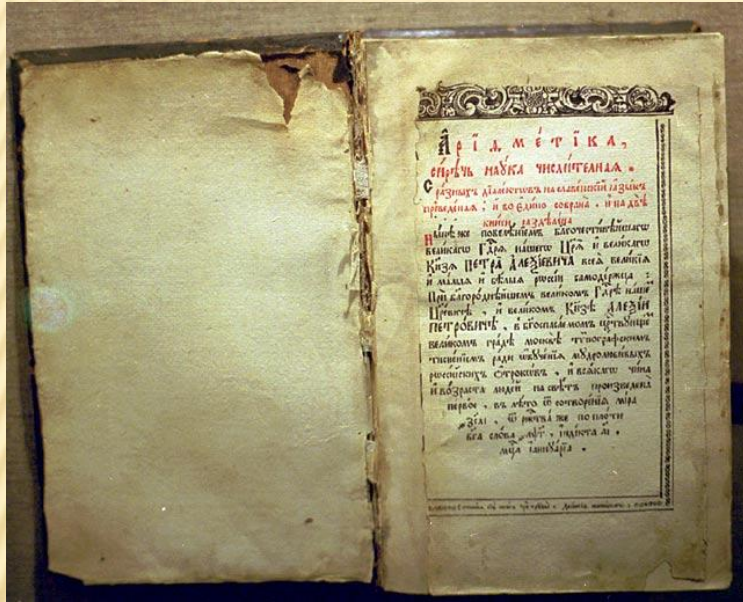 А҆рїѳме́тїка,
си́рѣчь наꙋ́ка числи́телнаѧ.
С̾ ра́зныхъ дїале́ктовъ на славе́нскїй ꙗ҆зы́къ
преведе́наѧ, и҆ во є҆ди́но со́брана, и҆ на двѣ̀
кни҄ги раздѣле́на
Ны́нѣ же повелѣ́нїемъ благочести́вѣйшагѡ
вели́кагѡ Гдⷭ҇рѧ на́шегѡ Цр҃ѧ̀ и҆ вели́кагѡ
Кн҃зѧ ПЕТРА̀ А҆ЛЕѮІ́ЕВИЧА всеѧ̀ вели́кїѧ
и҆ ма́лыѧ и҆ бѣ́лыѧ рѡссі́и самоде́ржца:
Прѝ благоро́днѣйшемъ вели́комъ Гдⷭ҇рѣ на́шемъ
Цр҃е́вичѣ, и҆ вели́комъ Кн҃зѣ А҆ЛЕѮІ́И
ПЕТРО́ВИЧѢ, в̾ бг҃оспаса́емомъ црⷭ҇твꙋющемъ
вели́комъ гра́дѣ москвѣ̀ тѷпогра́фскимъ
тисне́нїемъ ра́ди ѡ҆бꙋче́нїѧ мꙋдролюби́выхъ
рѡссі́йскихъ ѻ҆́трокѡвъ, и҆ всѧ́кагѡ чи́на
и҆ во́зраста люде́й на свѣ́тъ произведена̀
пе́рвое, въ лѣ́то ѿ сотворе́нїѧ мі́ра
҂зсаі, ѿ ржⷭ҇тва̀ же по пло́ти
бг҃а сло́ва ҂аѱг, і҆ндї́кта аі.
мцⷭ҇а і҆аннꙋа́рїа.